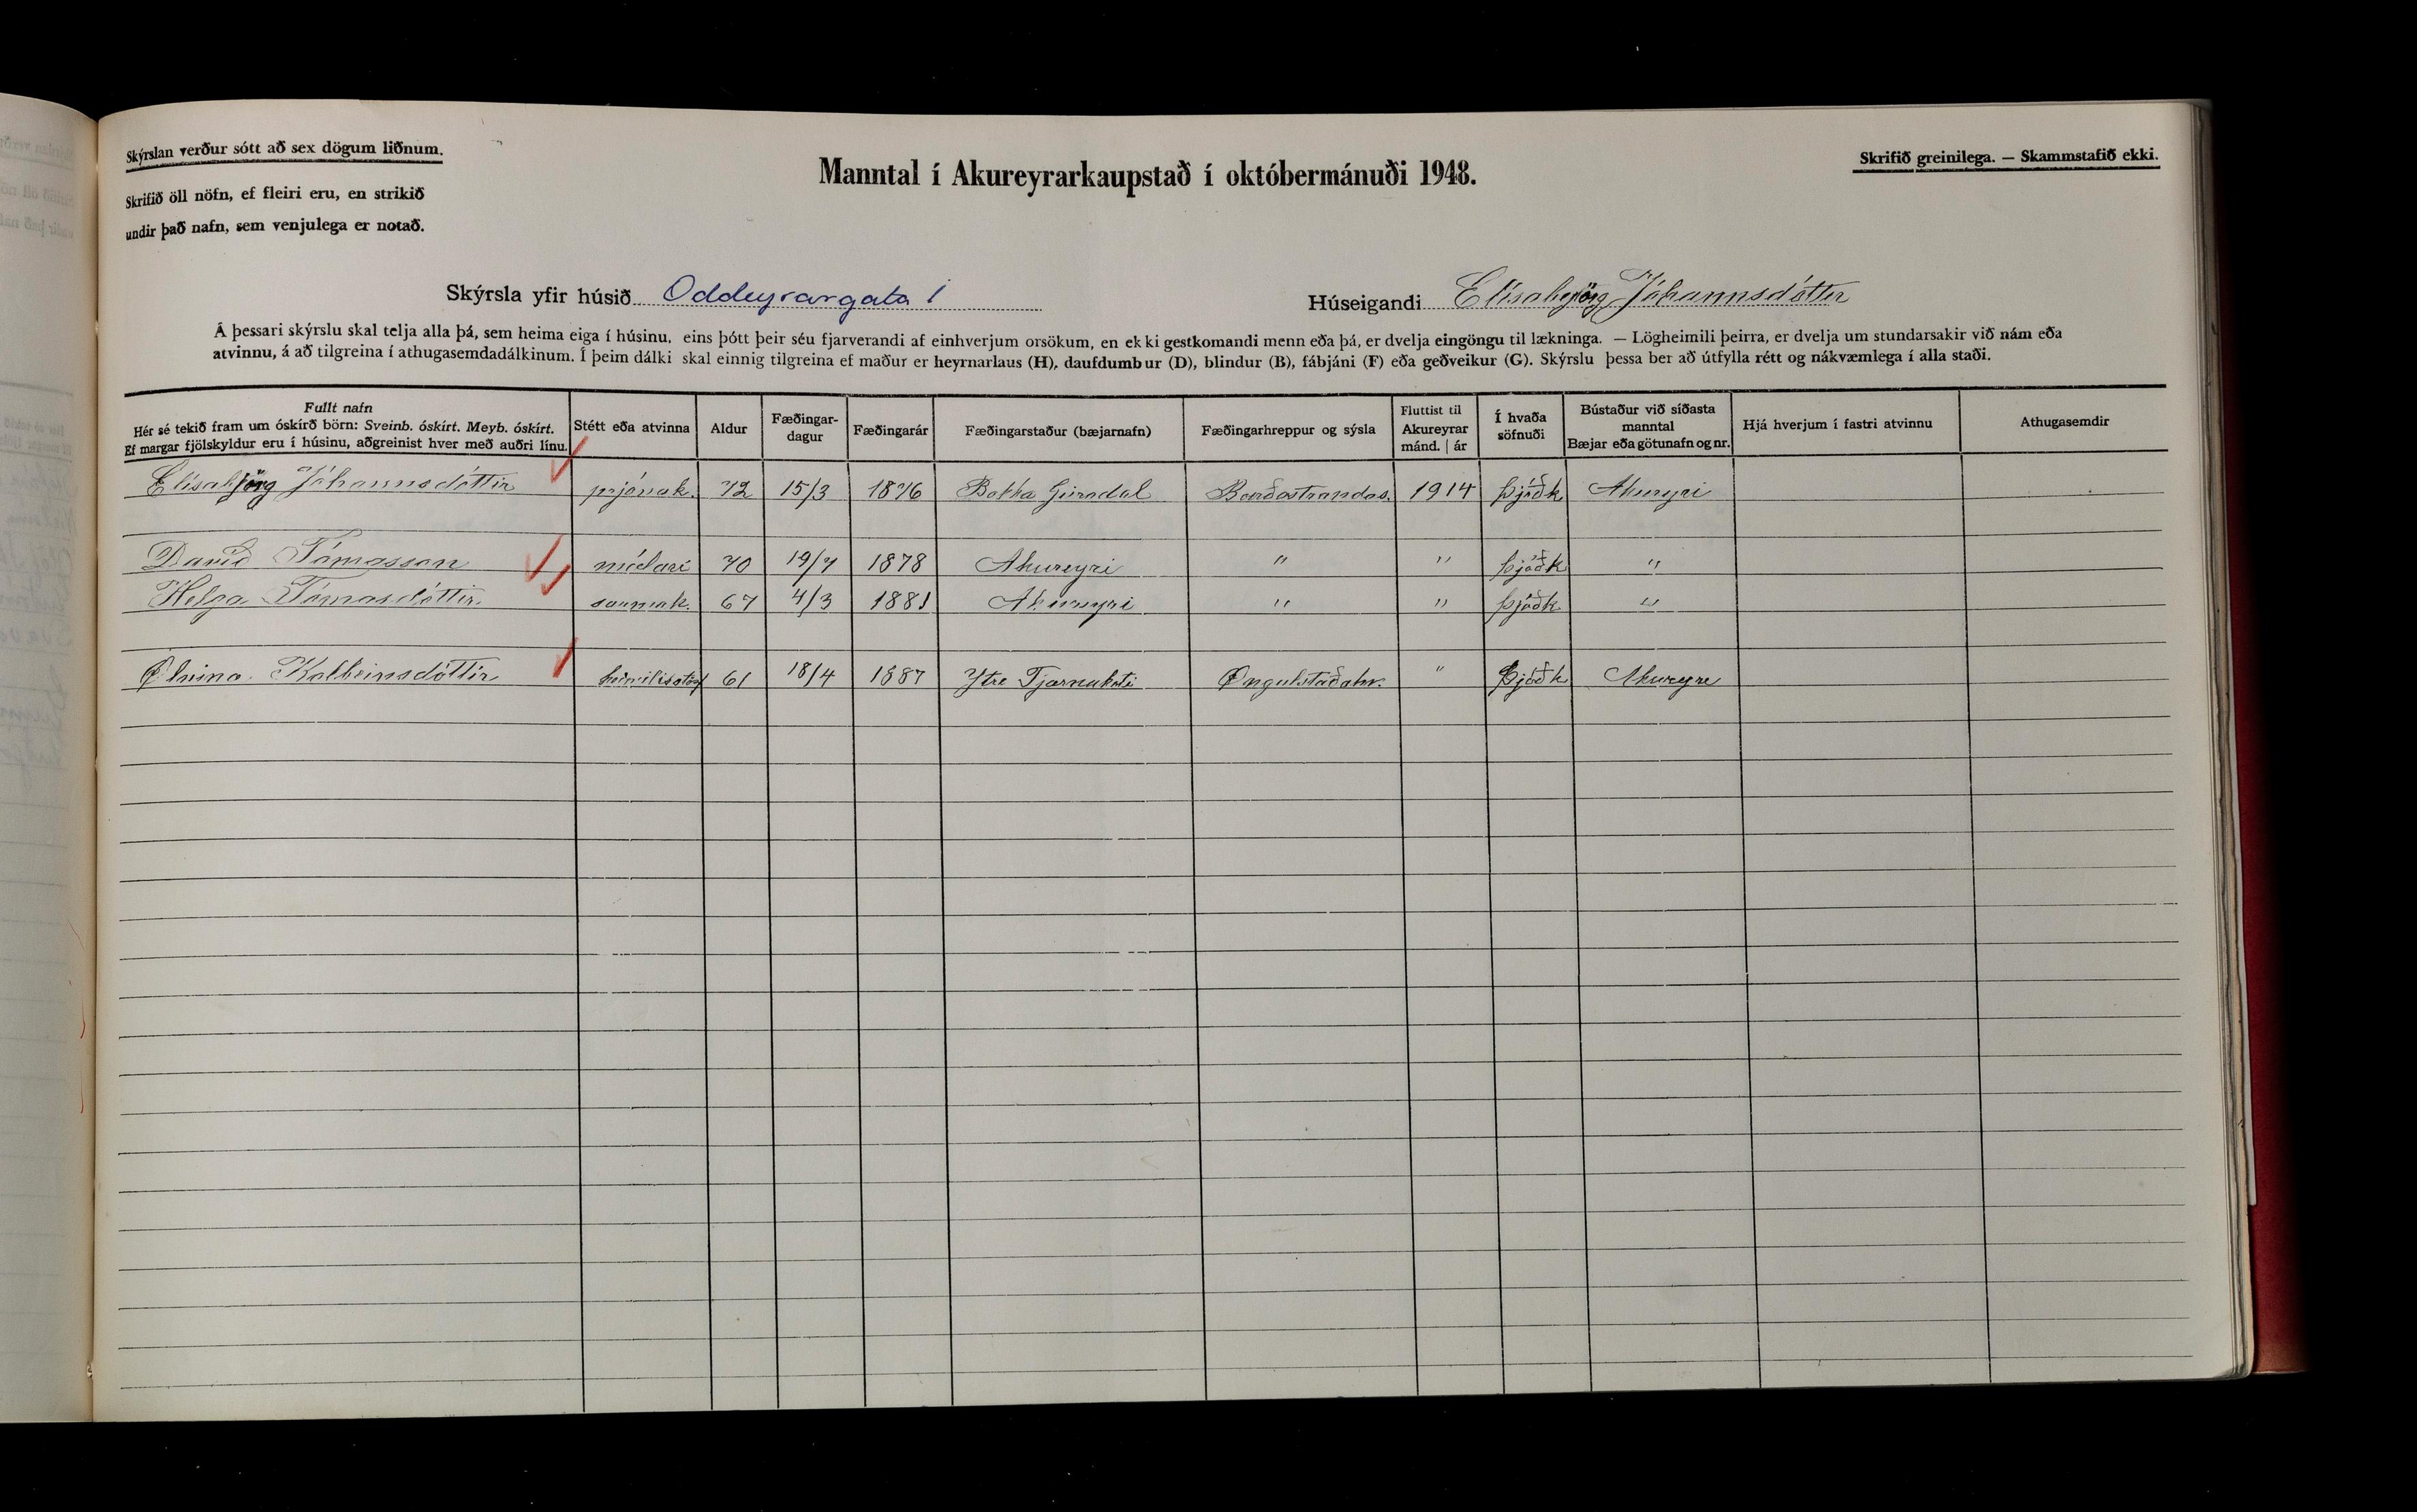 Skýrslan verður sótt að sex dögum liðnum.
Skrifið öll nöfn, ef fleiri eru, en strikið
undir það nafn, sem venjulega er notað.
Manntal í Akureyrarkaupstað í októbermánuði 1948.
Skrifið greinilega. — Skammstafið ekki.
Skýrsla yfir húsið Oddeyrargata 1
Húseigandi Elísabjörg Jóhannsdóttir
Á þessari skýrslu skal telja alla þá, sem heima eiga í húsinu, eins þótt þeir séu fjarverandi af einhverjum orsökum, en ekki gestkomandi menn eða þá, er dvelja eingöngu til lækninga. — Lögheimili þeirra, er dvelja um stundarsakir við nám eða
atvinnu, á að tilgreina í athugasemdadálkinum. Í þeim dálki skal einnig tilgreina ef maður er heyrnarlaus (H), daufdumbur (D), blindur (B), fábjáni (F) eða geðveikur (G). Skýrslu þessa ber að útfylla rétt og nákvæmlega í alla staði.
Fullt nafn
Hér sé tekið fram um óskírð börn: Sveinb. óskírt. Meyb. óskírt.
Ef margar fjölskyldur eru í húsinu, aðgreinist hver með auðri línu.
Stétt eða atvinna
Aldur
Fæðingar-
dagur
Fæðingarár
Fæðingarstaður (bæjarnafn)
Fæðingarhreppur og sýsla
Fluttist til
Akureyrar
mánd. | ár
Í hvaða
söfnuði
Bústaður við síðasta
manntal
Bæjar eða götunafn og nr.
Hjá hverjum í fastri atvinnu
Athugasemdir
Elísabjörg Jóhannsdóttir prjónak. 72 15/3 1876 Bakka Barðastrandas. 1914 Þjóðk Akureyri
Davíð Tómasson málari 70 19/7 1878 Akureyri " " Þjóðk "
Helga Tómasdóttir saumak. 67 4/3 1881 Akureyri " " Þjóðk "
Ólnina Kolbeinsdóttir 61 18/4 1887 Ytre Öngulstaðahr. " Þjóðk Akureyre